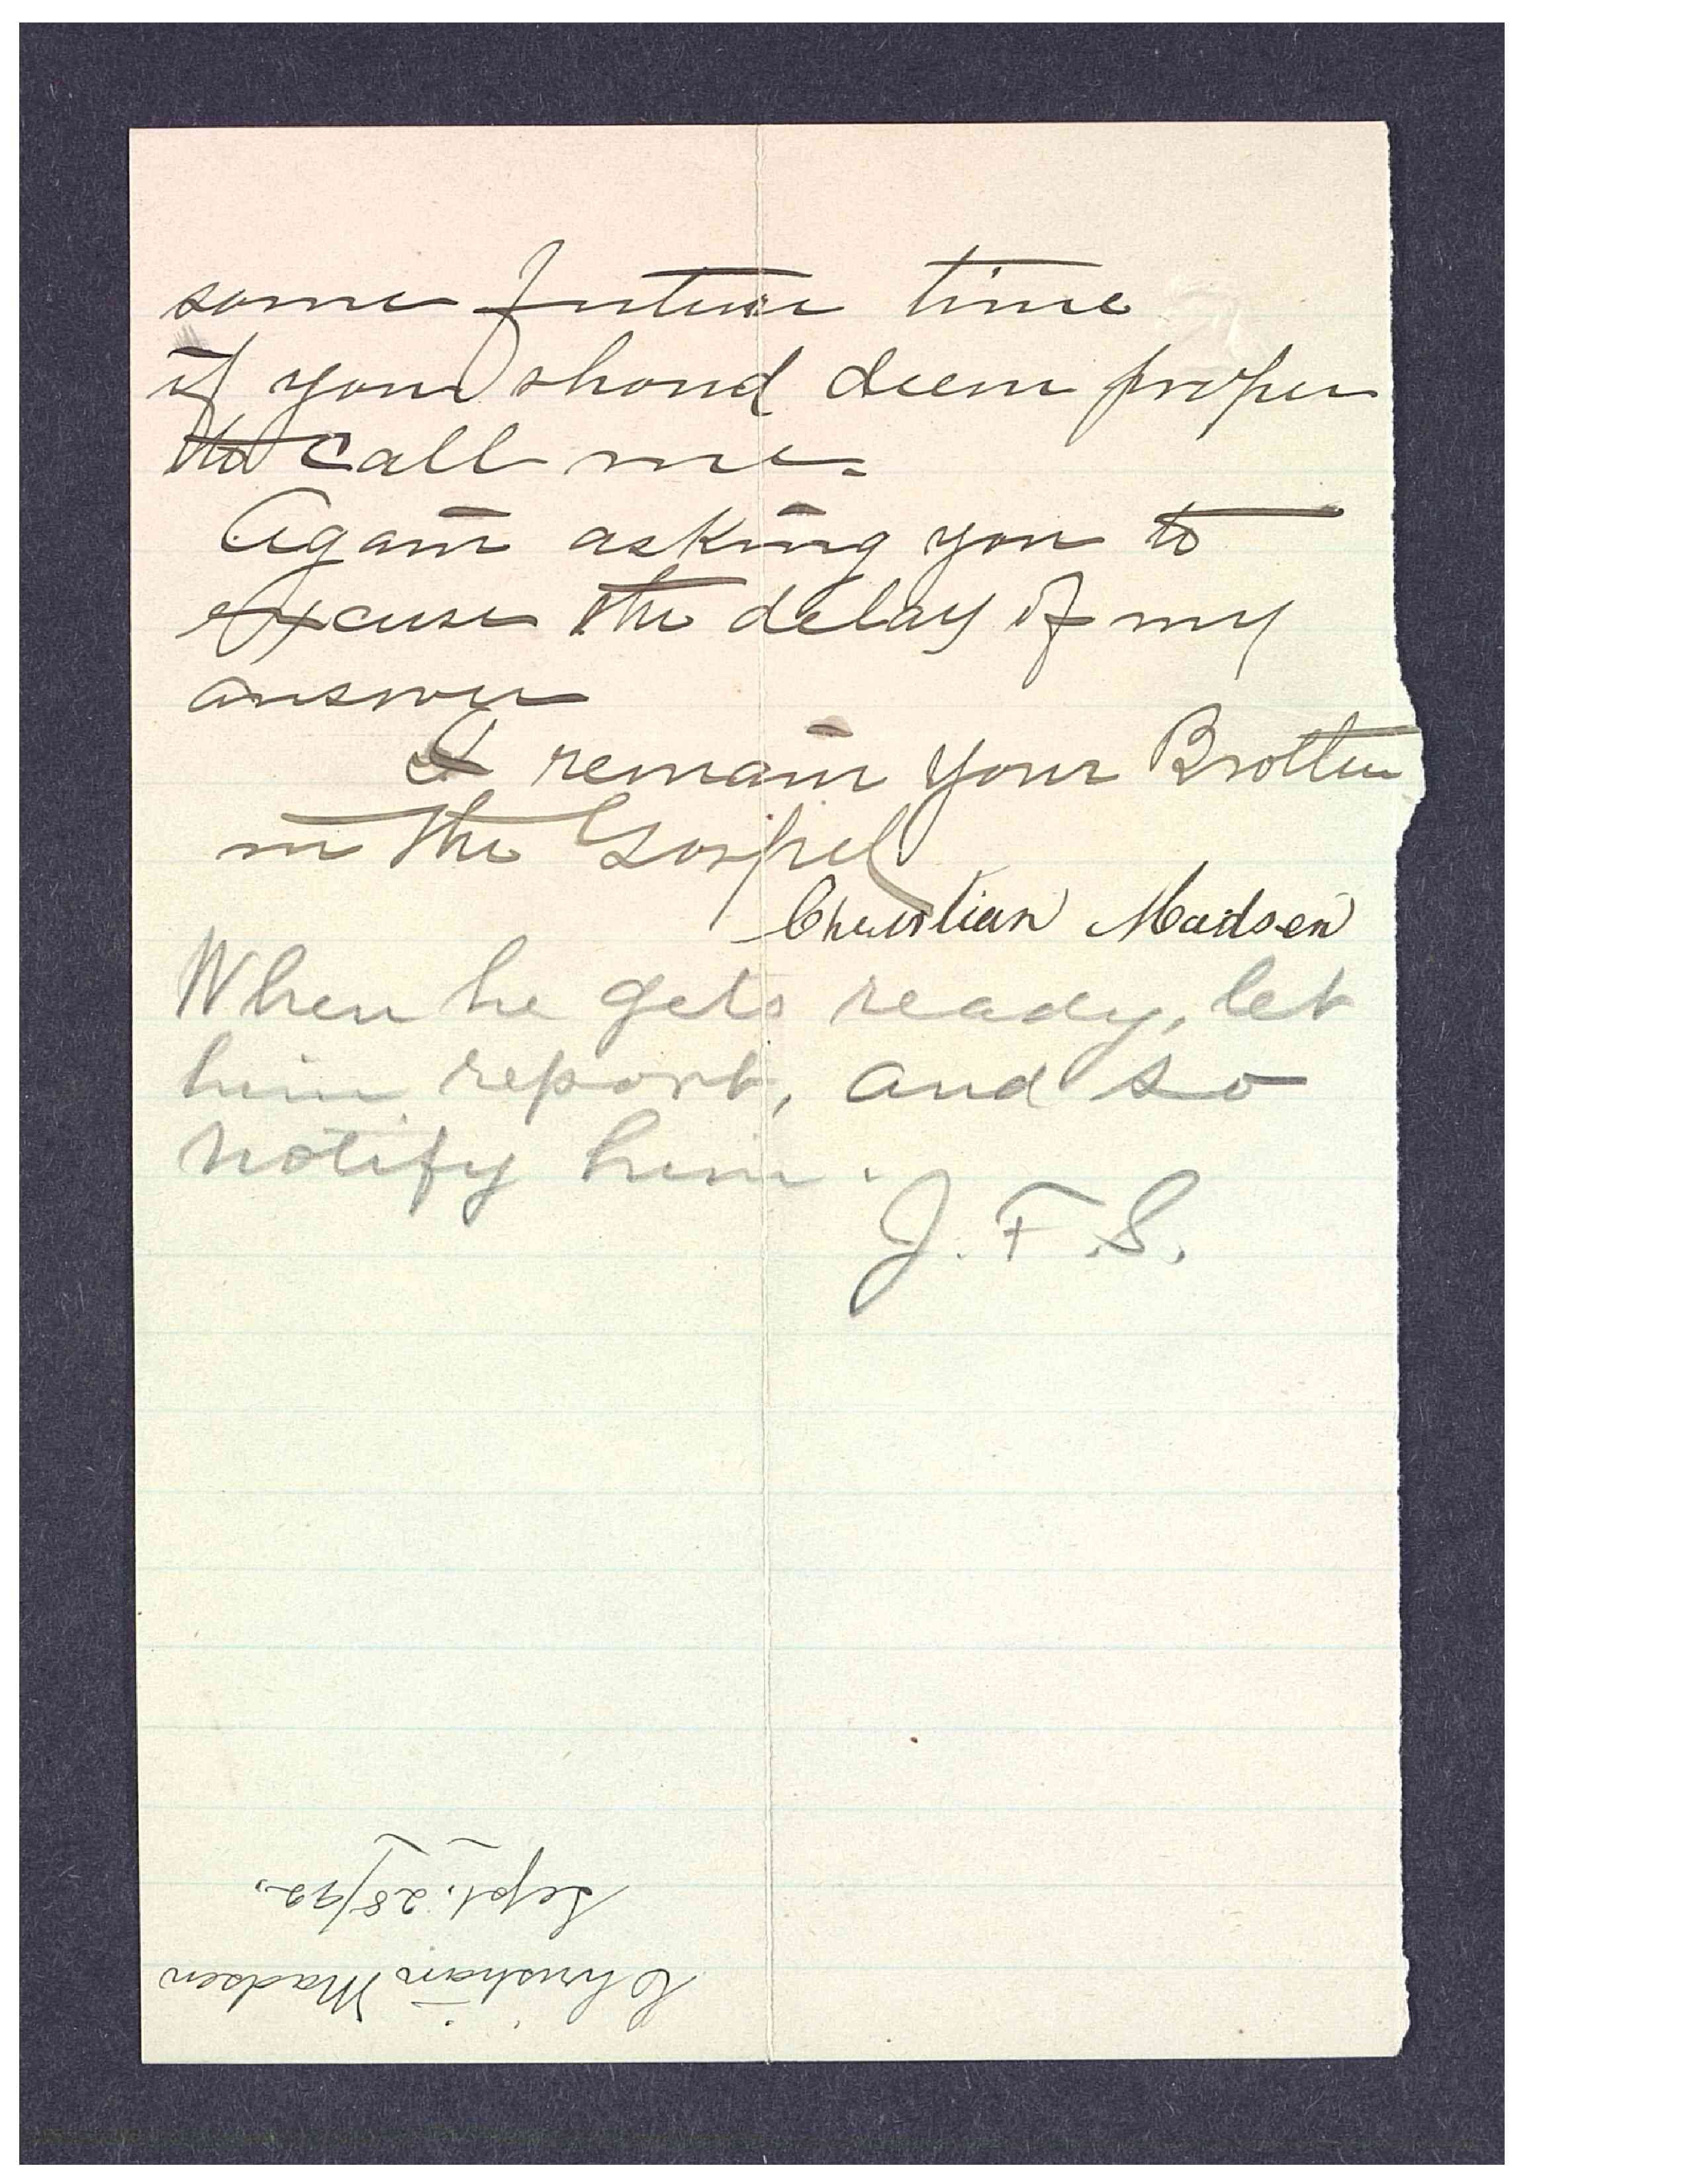 some future time
if you shoud deem proper
to call me.
Again asking you to
excuse the delay of my
answer
I remain your Brother
in the Gospel
Christian Madsen
When he gets ready, let
him report, and so
notify him.
J. F. S.
Christian Madsen
Sept. 28/92.